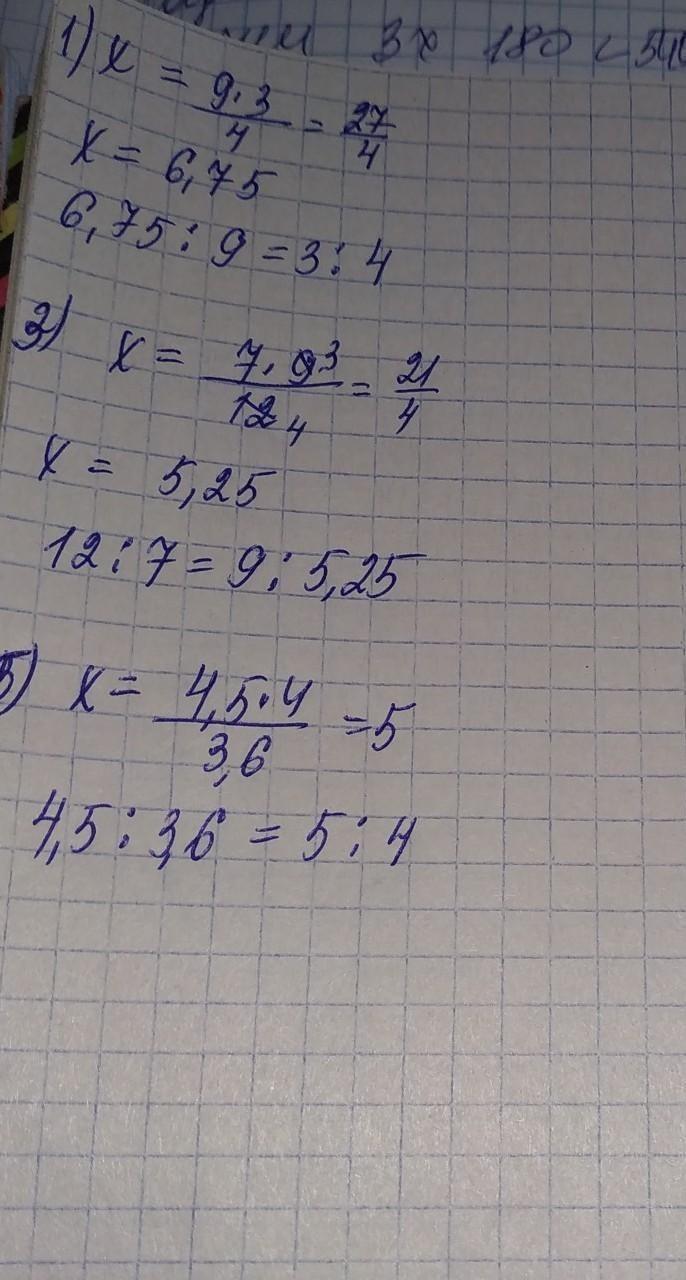 3x 180 < 540
1) x = 9·3/4 = 27/4
x = 6,75
6,75 : 9 = 3 : 4
3) x = 7·9 3/12 4 = 21/4
x = 5,25
12 : 7 = 9 : 5,25
5) x = 4,5·4/3,6 = 5
4,5 : 3,6 = 5 : 4